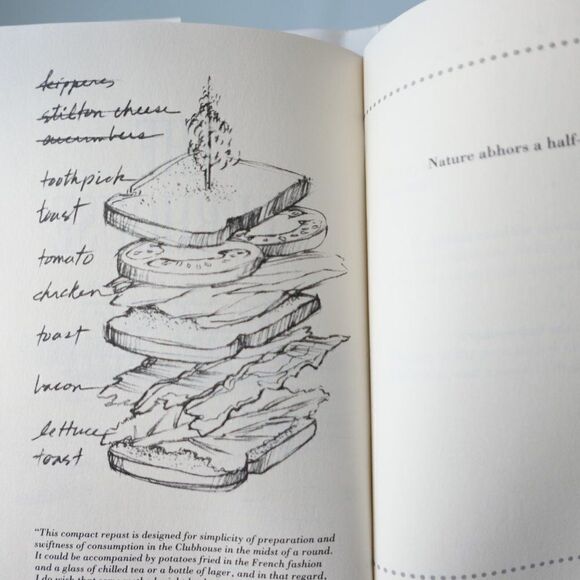 kippers
stilton cheese
cucumbers
toothpick
toast
tomato
chicken
toast
bacon
lettuce
toast
"This compact repast is designed for simplicity of preparation and
swiftness of consumption in the Clubhouse in the midst of a round.
It could be accompanied by potatoes fried in the French fashion
and a glass of chilled tea or a bottle of lager, and in that regard,
Nature abhors a half-